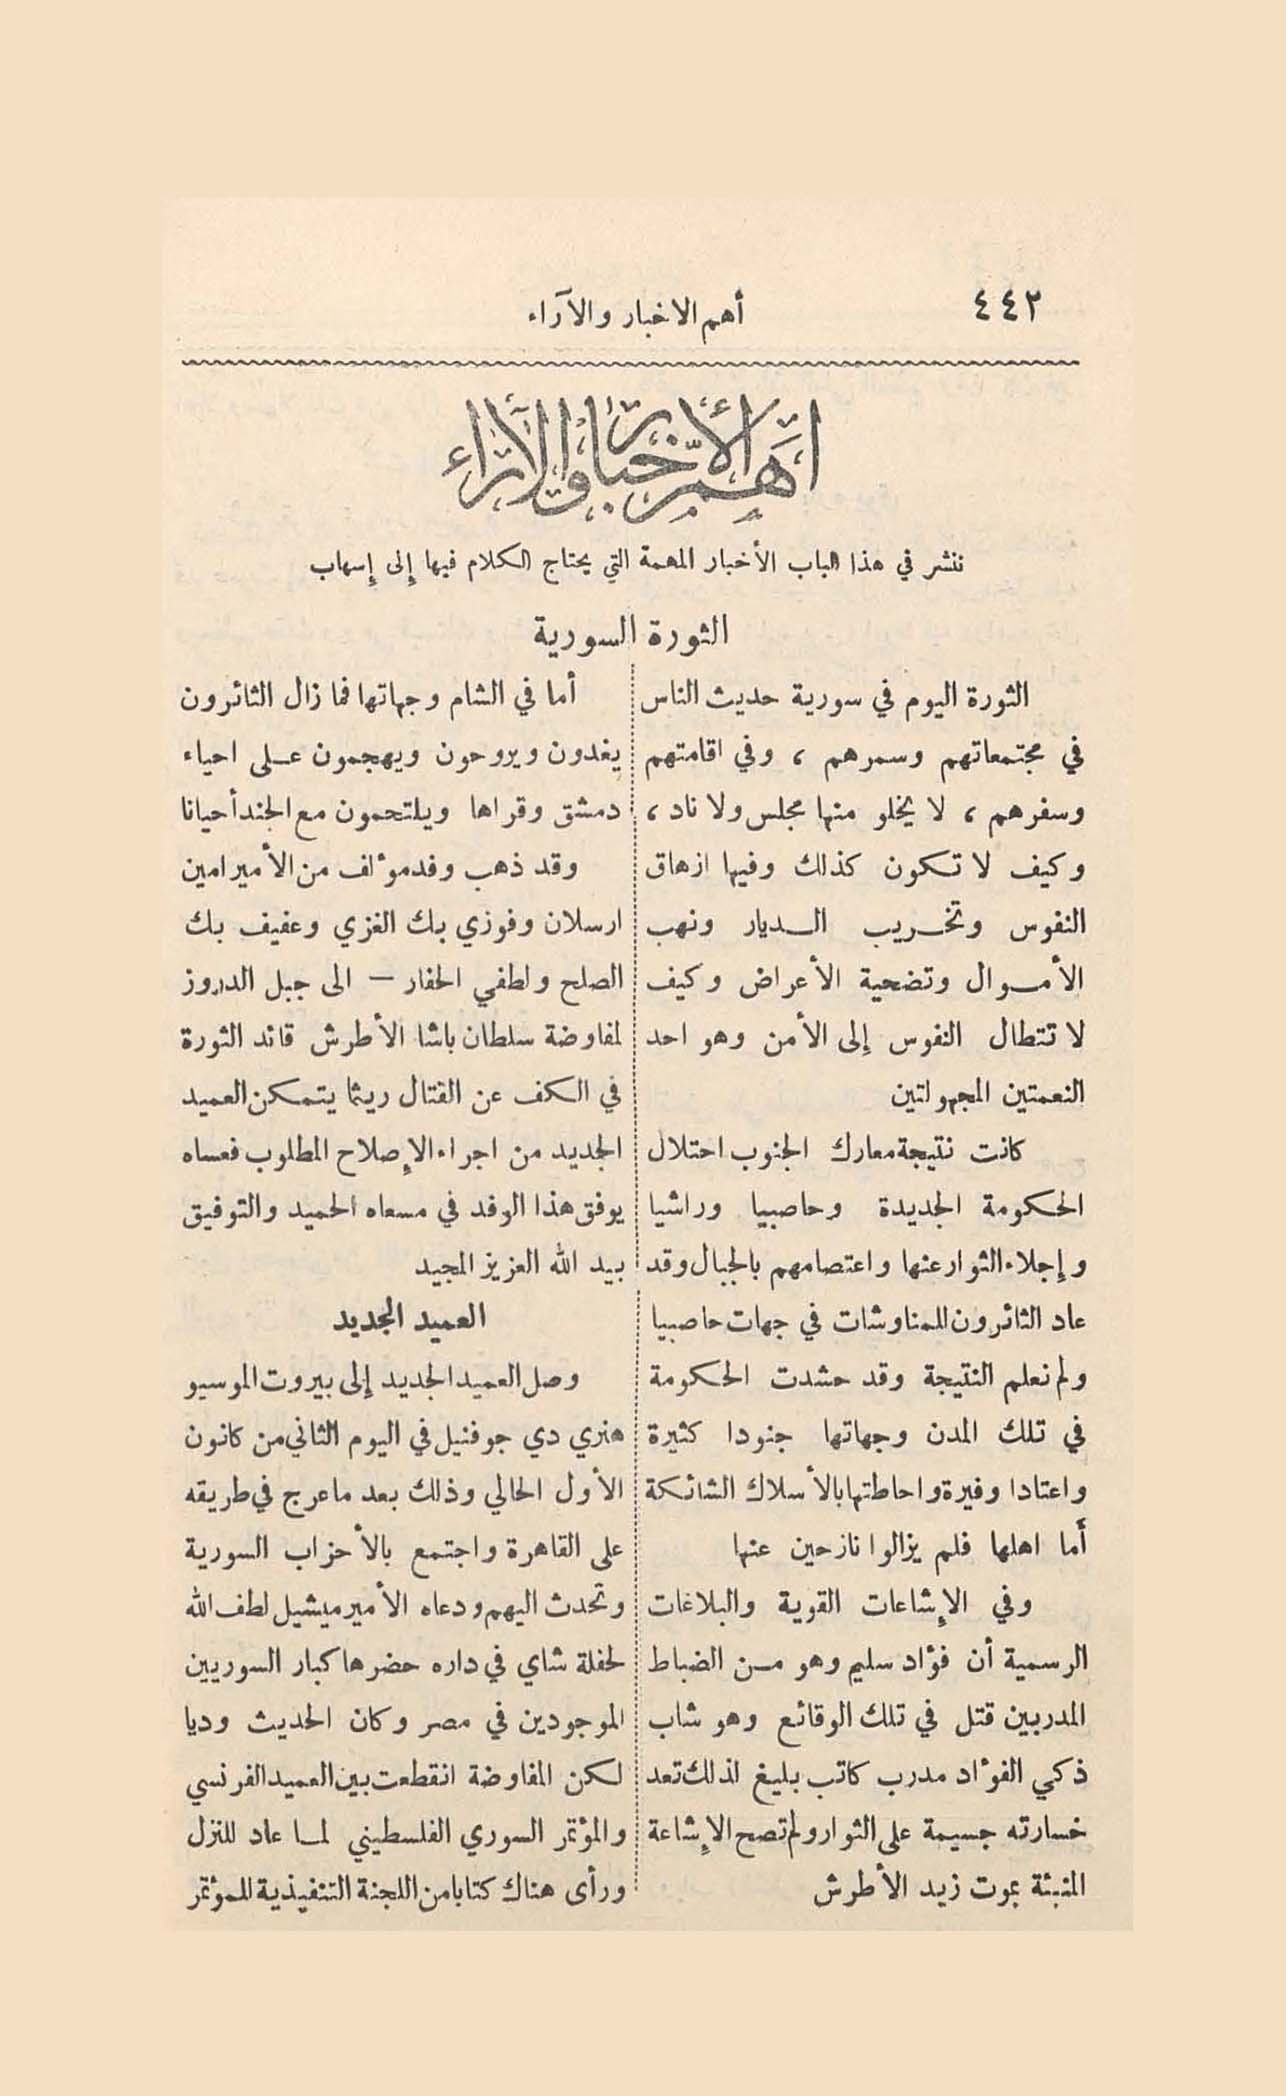 ٤٤٢
أهم الاخبار والآراء
أهم الأخبار والآراء
ننشر في هذا الباب الأخبار المهمة التي يحتاج الكلام فيها إلى إسهاب
الثورة السورية
الثورة اليوم في سورية حديث الناس
في مجتمعاتهم وسمرهم ، وفي اقامتهم
وسفرهم ، لا يخلو منها مجلس ولا ناد ،
وكيف لا تكون كذلك وفيها ازهاق
النفوس وتخريب الديار ونهب
الأموال وتضحية الأعراض وكيف
لا تتطال النفوس إلى الأمن وهو احد
النعمتين المجهولتين
كانت نتيجة معارك الجنوب احتلال
الحكومة الجديدة وحاصبيا وراشيا
وإجلاء الثوار عنها واعتصامهم بالجبال وقد
عاد الثائرون للمناوشات في جهات حاصبيا
ولم نعلم النتيجة وقد حشدت الحكومة
في تلك المدن وجهاتها جنودا كثيرة
واعتادا وفيرة واحاطتها بالأسلاك الشائكة
أما اهلها فلم يزالوا نازحين عنها
وفي الإشاعات القوية والبلاغات
الرسمية أن فؤاد سليم وهو من الضباط
المدربين قتل في تلك الوقائع وهو شاب
ذكي الفؤاد مدرب كاتب بليغ لذلك تعد
خسارته جسيمة على الثوار ولم تصح الإشاعة
المنبئة بموت زيد الأطرش
أما في الشام وجهاتها فما زال الثائرون
يغدون ويروحون ويهجمون على احياء
دمشق وقراها ويلتحمون مع الجند أحيانا
وقد ذهب وفد مؤلف من الأمير امين
ارسلان وفوزي بك الغزي وعفيف بك
الصلح ولطفي الحفار – الى جبل الدروز
لمفاوضة سلطان باشا الأطرش قائد الثورة
في الكف عن القتال ريثما يتمكن العميد
الجديد من اجراء الإصلاح المطلوب فعساه
يوفق هذا الوفد في مسعاه الحميد والتوفيق
بيد الله العزيز المجيد
العميد الجديد
وصل العميد الجديد إلى بيروت الموسيو
هنري دي جوفنيل في اليوم الثاني من كانون
الأول الحالي وذلك بعد ما عرج في طريقه
على القاهرة واجتمع بالأحزاب السورية
وتحدث اليهم ودعاه الأمير ميشيل لطف الله
لحفلة شاي في داره حضرها كبار السوريين
الموجودين في مصر وكان الحديث وديا
لكن المفاوضة انقطعت بين العميد الفرنسي
والمؤتمر السوري الفلسطيني لما عاد للنزل
ورأى هناك كتابا من اللجنة التنفيذية للمؤتمر